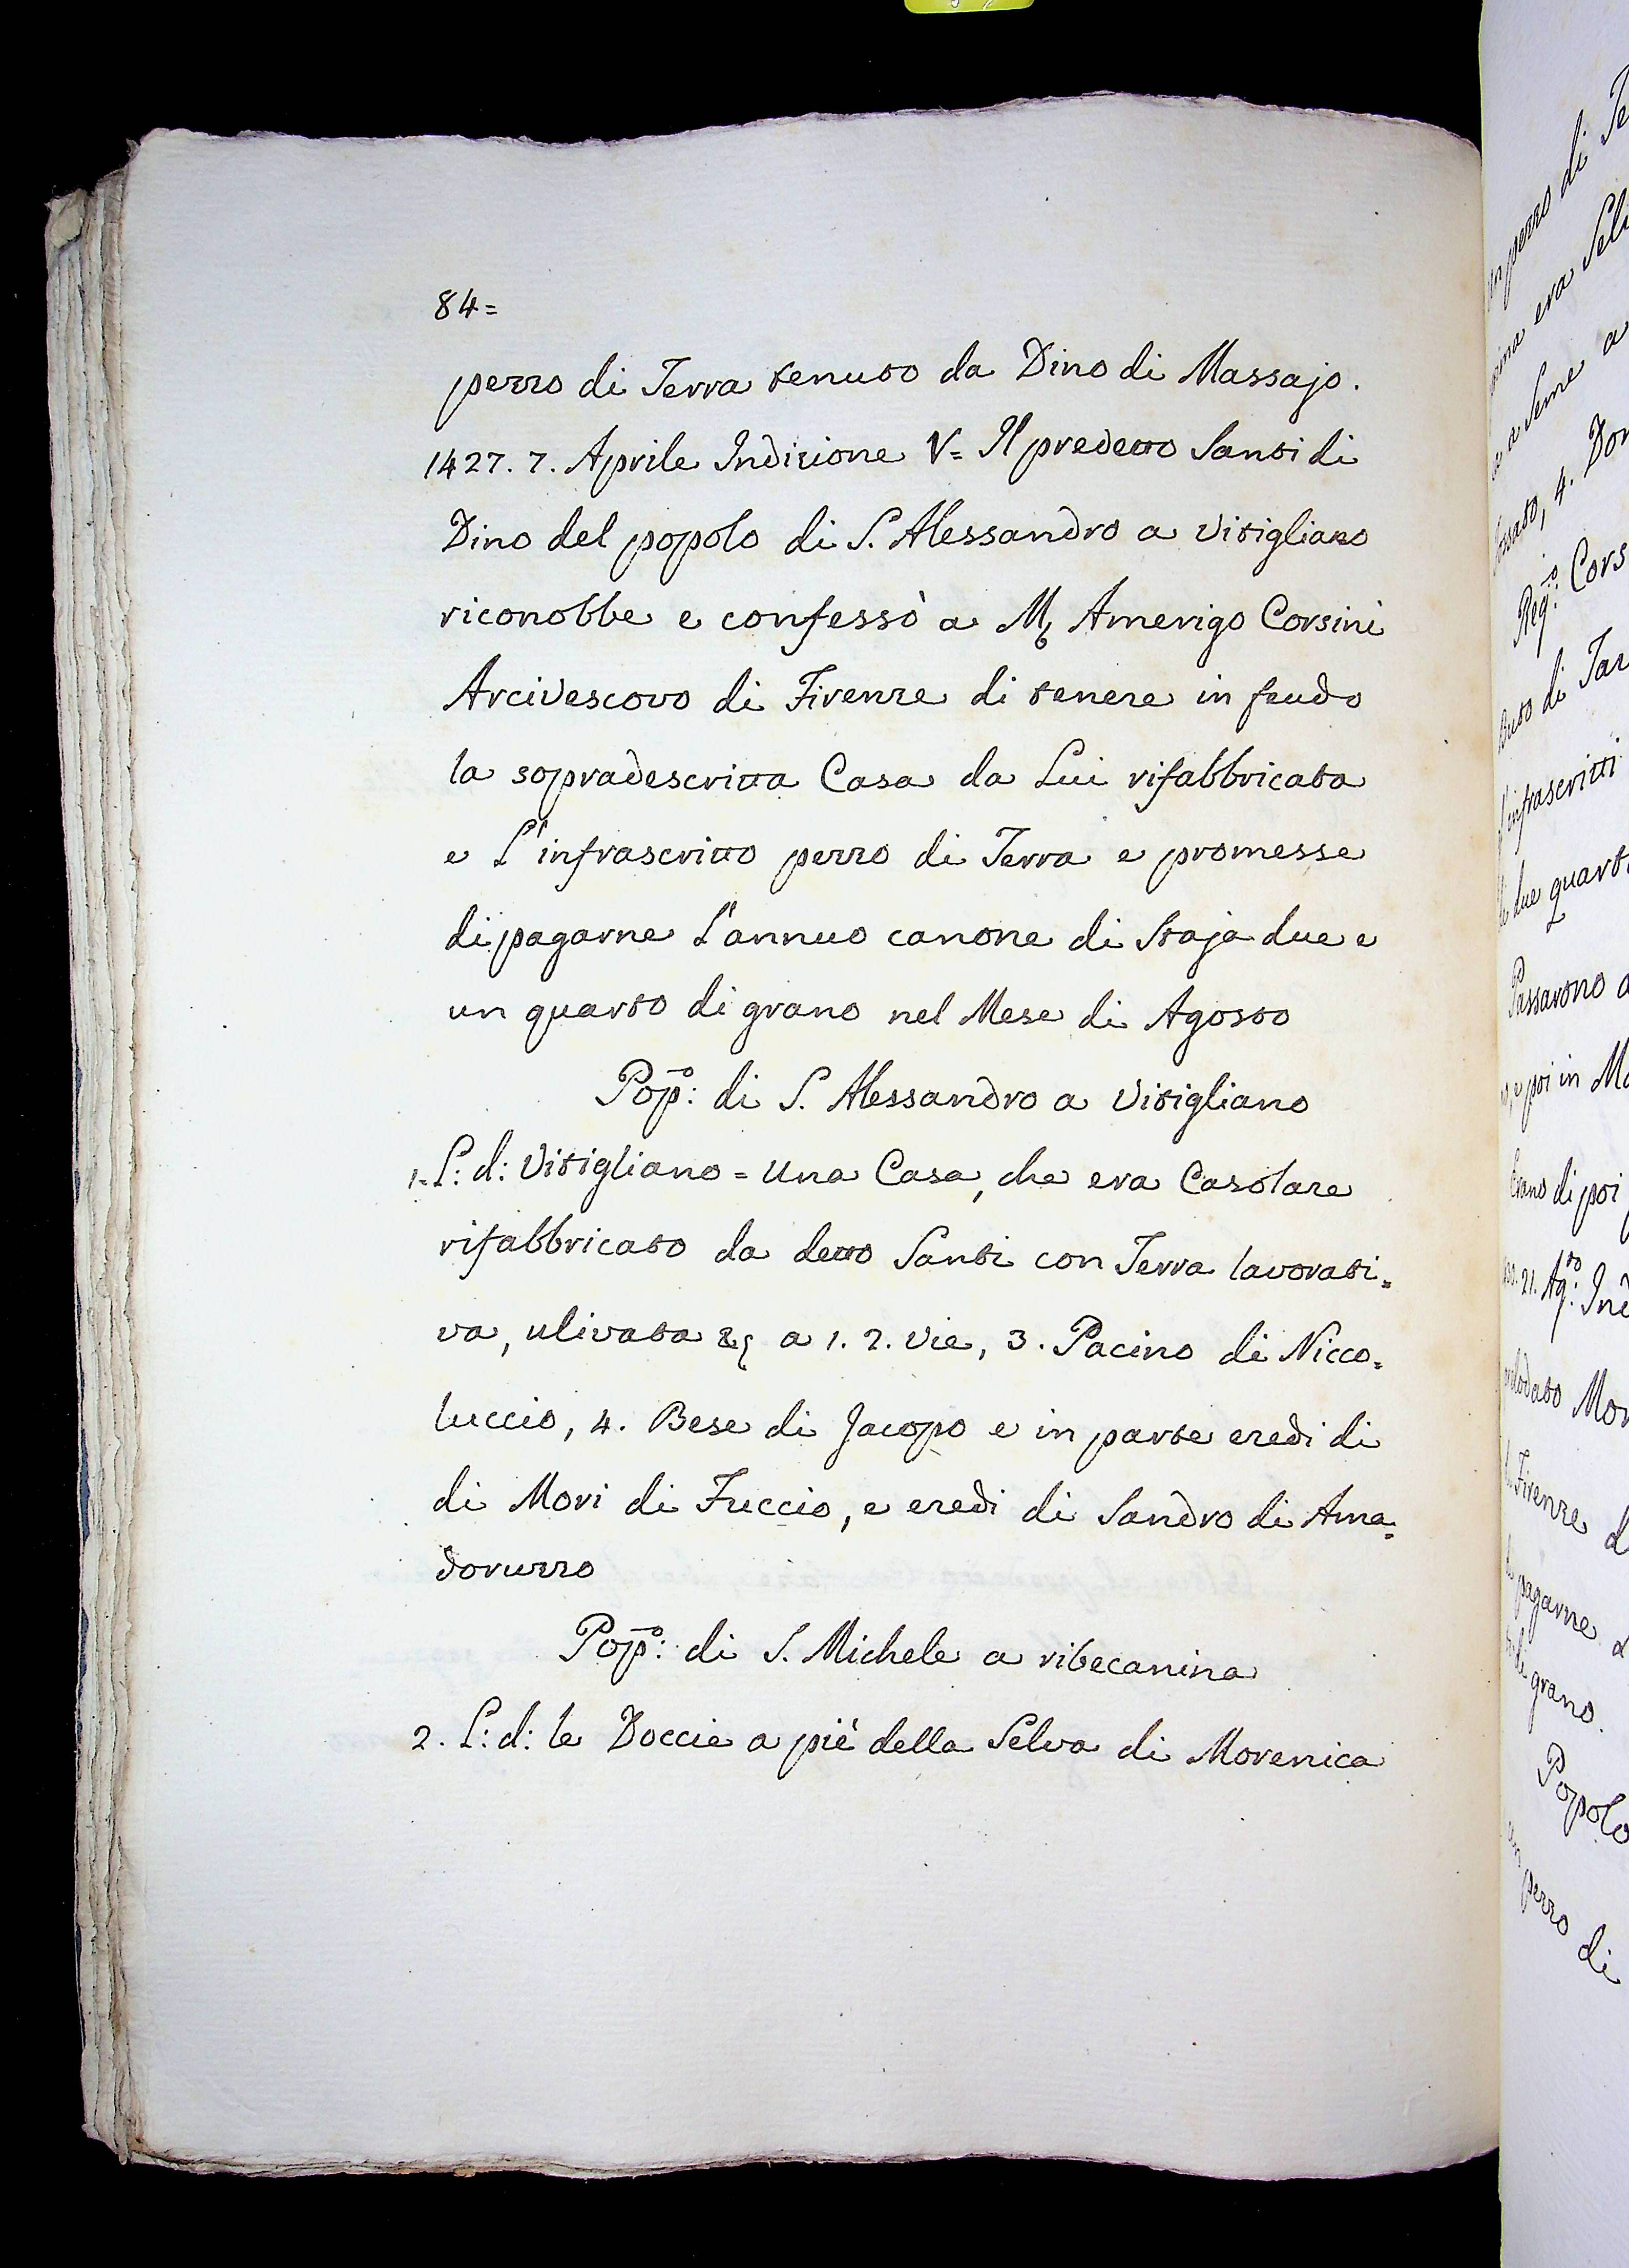 84=
pezzo di Terra tenuto da Dino di Massajo.
1427. 7. Aprile Indizione V= Il predetto Santi di
Dino del popolo di S. Alessandro a Vitigliano
riconobbe e confessò a M. Amerigo Corsini
Arcivescovo di Firenze di tenere in feudo
la sopradescritta Casa da Lui rifabbricata
e L'infrascritto pezzo di Terra e promesse
di pagarne L'annuo canone di Staja due e
un quarto di grano nel Mese di Agosto
Pop.o: di S. Alessandro a Vitigliano
1. L: d: Vitigliano = Una Casa, che era Casolare
rifabbricato da detto Santi con Terra lavorati=
va, ulivata &c a 1. 2. Vie, 3. Pacino di Nicco=
luccio, 4. Bese di Jacopo e in parte eredi di
di Mori di Fuccio, e eredi di Sandro di Ama=
doruzzo
Pop.o: di S. Michele a ribecanina
2. L: d: le Doccie a piè della Selva di Morenica
un pezzo di
era
a Seme a
4.
Reg.o: Cors
di
infrascritti
due quart
Passarono a
e poi in
di poi
21. Ag.to: Ind
Firenze d
pagarne
grano.
Popolo
un pezzo di